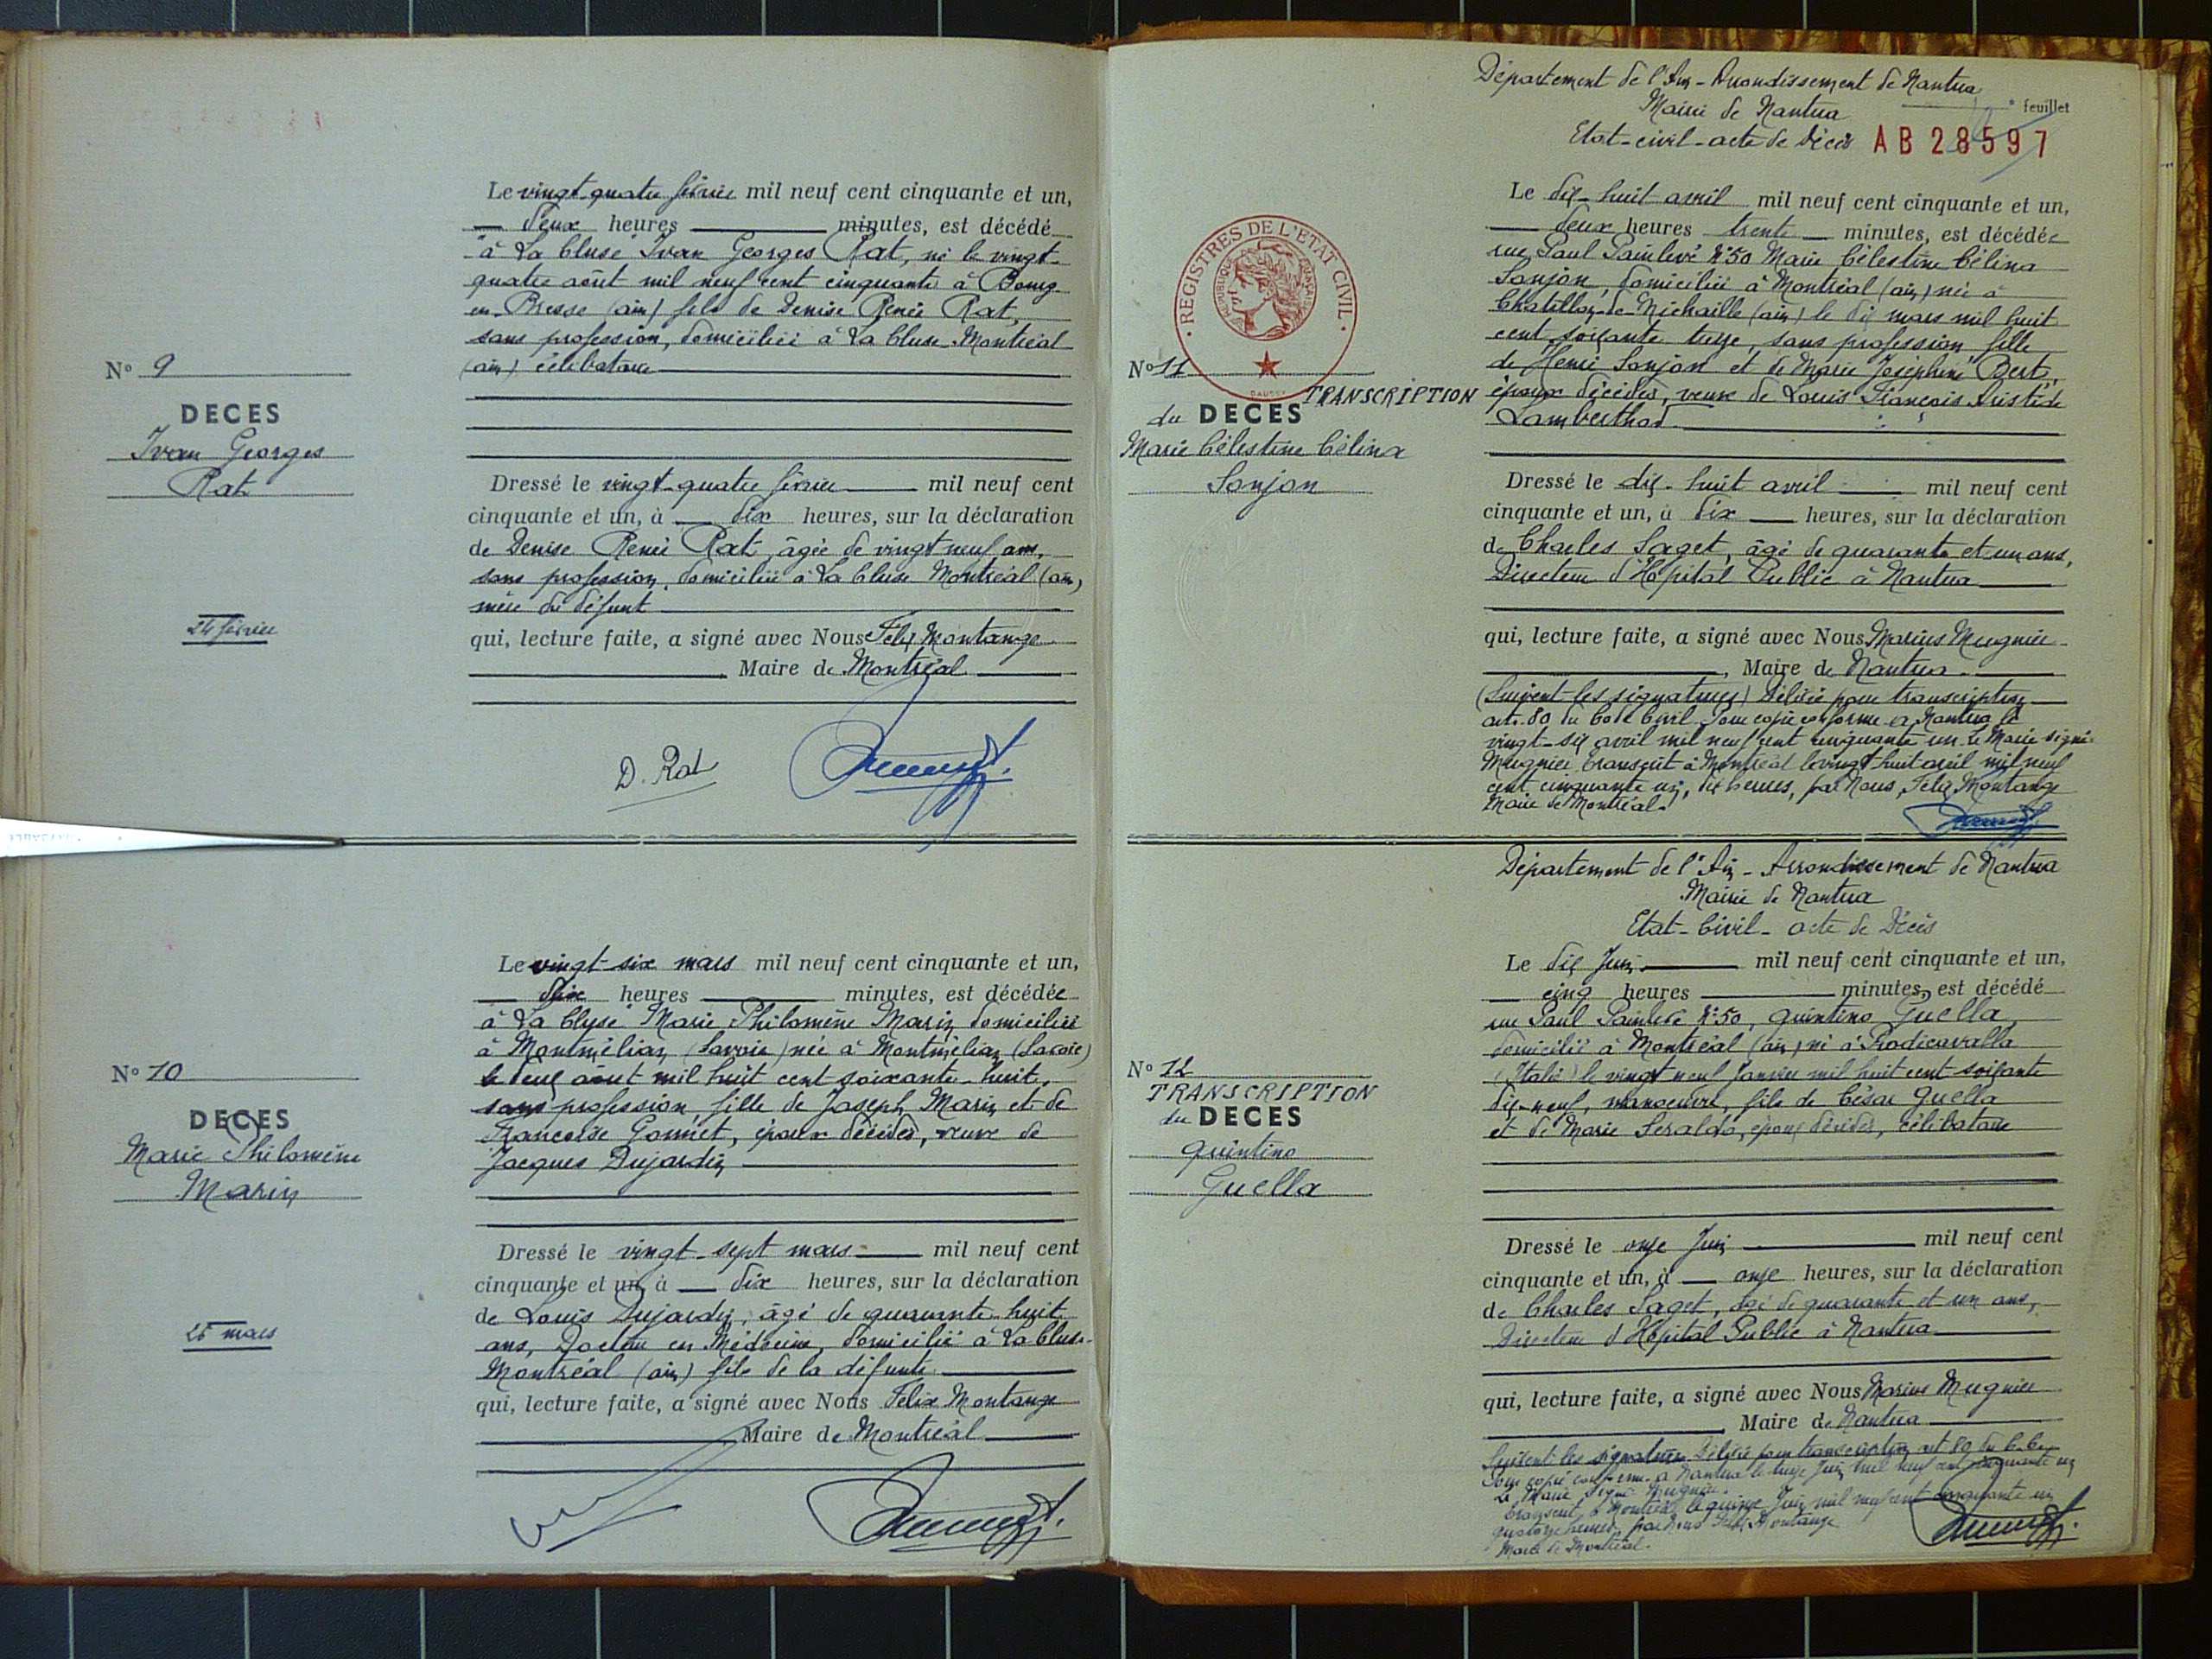 N° 9
DECES
Ivan Georges
Rat
24 février
Le vingt-quatre février mil neuf cent cinquante et un,
deux heures minutes, est décédé
à La Cluse Ivan Georges Rat, né le vingt-
quatre août mil neuf cent cinquante à Bourg-
en-Bresse (ain) fils de Denise Renée Rat,
sans profession, domiciliée à La Cluse-Montréal
(ain) célibataire
Dressé le vingt-quatre février mil neuf cent
cinquante et un, à dix heures, sur la déclaration
de Denise Renée Rat, âgée de vingt neuf ans,
sans profession, domiciliée à La Cluse Montréal (ain)
mère du défunt
qui, lecture faite, a signé avec Nous Félix Montange
Maire de Montréal
D. Rat
N° 10
DECES
Marie Philomène
Marin
26 mars
Le vingt-six mars mil neuf cent cinquante et un,
heures minutes, est décédée
à La Cluse Marie Philomène Marin domiciliée
à Montmélian (Savoie) née à Montmélian (Savoie)
le deux août mil huit cent soixante-huit,
sans profession, fille de Joseph Marin et de
Françoise Gonnet, époux décédés, veuve de
Jacques Dujardin
Dressé le vingt-sept mars mil neuf cent
cinquante et un, à dix heures, sur la déclaration
de Louis Dujardin, âgé de quarante-huit
ans, Docteur en Médecine, domicilié à La Cluse-
Montréal (ain) fils de la défunte
qui, lecture faite, a signé avec Nous Félix Montange
Maire de Montréal
Département de l'Ain - Arrondissement de Nantua
Mairie de Nantua
feuillet
Etat-civil - acte de Décès AB 28597
REGISTRES DE L'ETAT CIVIL
N° 11
TRANSCRIPTION
du DECES
Marie Célestine Célina
Sonjon
Le dix-huit avril mil neuf cent cinquante et un,
deux heures trente minutes, est décédée
rue Paul Painlevé N°50 Marie Célestine Célina
Sonjon, domiciliée à Montréal (ain) née à
Chatillon-de-Michaille (ain) le dix mars mil huit
cent soixante treize, sans profession fille
de Henri Sonjon et de Marie Joséphine Bert,
époux décédés, veuve de Louis François Aristide
Lamberthod
Dressé le dix-huit avril mil neuf cent
cinquante et un, à dix heures, sur la déclaration
de Charles Saget, âgé de quarante et un ans,
Directeur d'Hôpital Public à Nantua
qui, lecture faite, a signé avec Nous Marius Mugnier
, Maire de Nantua
(Suivent les signatures) Délivré pour transcription
art. 80 du Code Civil Pour copie conforme à Nantua le
vingt-six avril mil neuf cent cinquante un Le Maire signé
Mugnier transcrit à Montréal le vingt huit avril mil neuf
cent cinquante un, dix heures, par Nous, Félix Montange
Maire de Montréal.
Département de l'Ain - Arrondissement de Nantua
Mairie de Nantua
Etat-Civil - acte de Décès
N° 12
TRANSCRIPTION
du DECES
Quintino
Guella
Le dix Juin mil neuf cent cinquante et un,
cinq heures minutes, est décédé
rue Paul Painlevé N°50, Quintino Guella,
domicilié à Montréal (ain) né à Prodicavalla
(Italie) le vingt neuf Janvier mil huit cent soixante
dix-neuf, manoeuvre, fils de César Guella
et de Marie Seraldo, époux décédés, célibataire
Dressé le onze Juin mil neuf cent
cinquante et un, à onze heures, sur la déclaration
de Charles Saget, âgé de quarante et un ans,
Directeur d'Hôpital Public à Nantua
qui, lecture faite, a signé avec Nous Marius Mugnier
Maire de Nantua
Suivent les signatures Délivré pour transcription art 80 du C. Civ.
Pour copie conforme à Nantua le treize Juin mil neuf cent cinquante un
Le Maire signé Mugnier.
transcrit à Montréal le quinze Juin mil neuf cent cinquante un
quatorze heures, par Nous Félix Montange
Maire de Montréal.